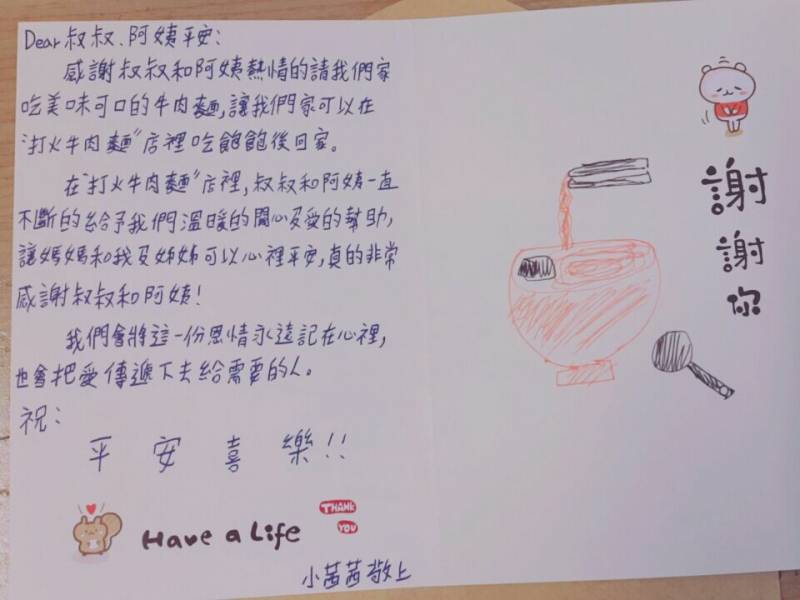 Dear 叔叔、阿姨平安:
感謝叔叔和阿姨熱情的請我們家
吃美味可口的牛肉麵,讓我們家可以在
"打火牛肉麵"店裡吃飽飽後回家。
在"打火牛肉麵"店裡,叔叔和阿姨一直
不斷的給予我們溫暖的關心及愛的幫助,
讓媽媽和我及姊姊可以心裡平安,真的非常
感謝叔叔和阿姨!
我們會將這一份恩情永遠記在心裡,
也會把愛傳遞下去給需要的人。
祝:
平安喜樂!!
Have a Life
THANK
YOU
小茜茜敬上
謝
謝
你